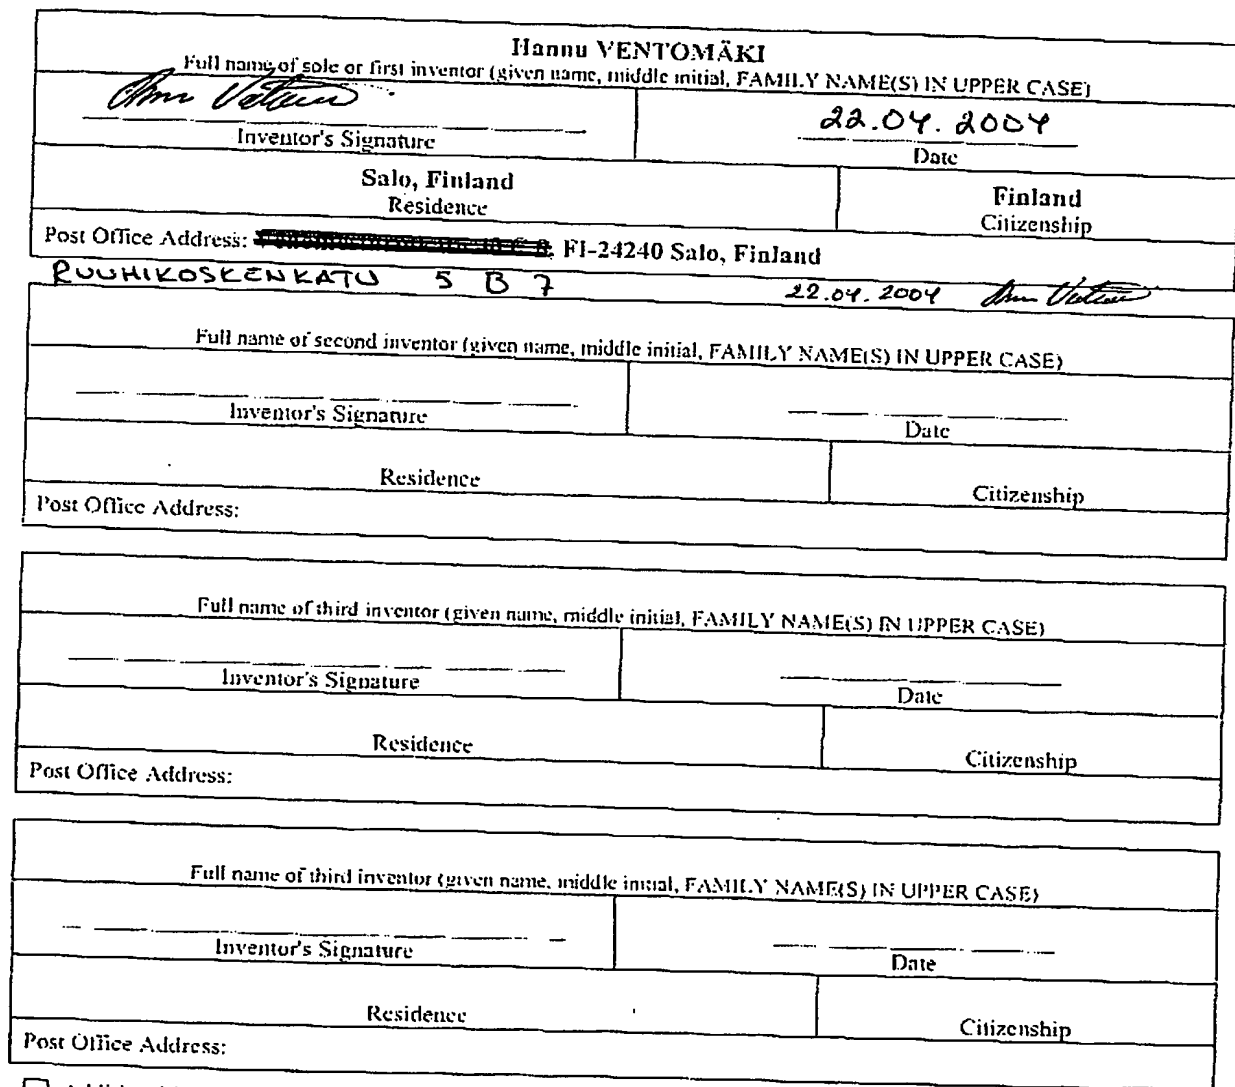 Hannu VENTOMÄKI
Full name of sole or first inventor (given name, middle initial, FAMILY NAME(S) IN UPPER CASE)
22.04.2004
Inventor's Signature Date
Salo, Finland Finland
Residence Citizenship
Post Office Address: FI-24240 Salo, Finland
RUUHIKOSKENKATU 5 B 7 22.04.2004
Full name of second inventor (given name, middle initial, FAMILY NAME(S) IN UPPER CASE)
Inventor's Signature Date
Residence Citizenship
Post Office Address:
Full name of third inventor (given name, middle initial, FAMILY NAME(S) IN UPPER CASE)
Inventor's Signature Date
Residence Citizenship
Post Office Address:
Full name of third inventor (given name, middle initial, FAMILY NAME(S) IN UPPER CASE)
Inventor's Signature Date
Residence Citizenship
Post Office Address: